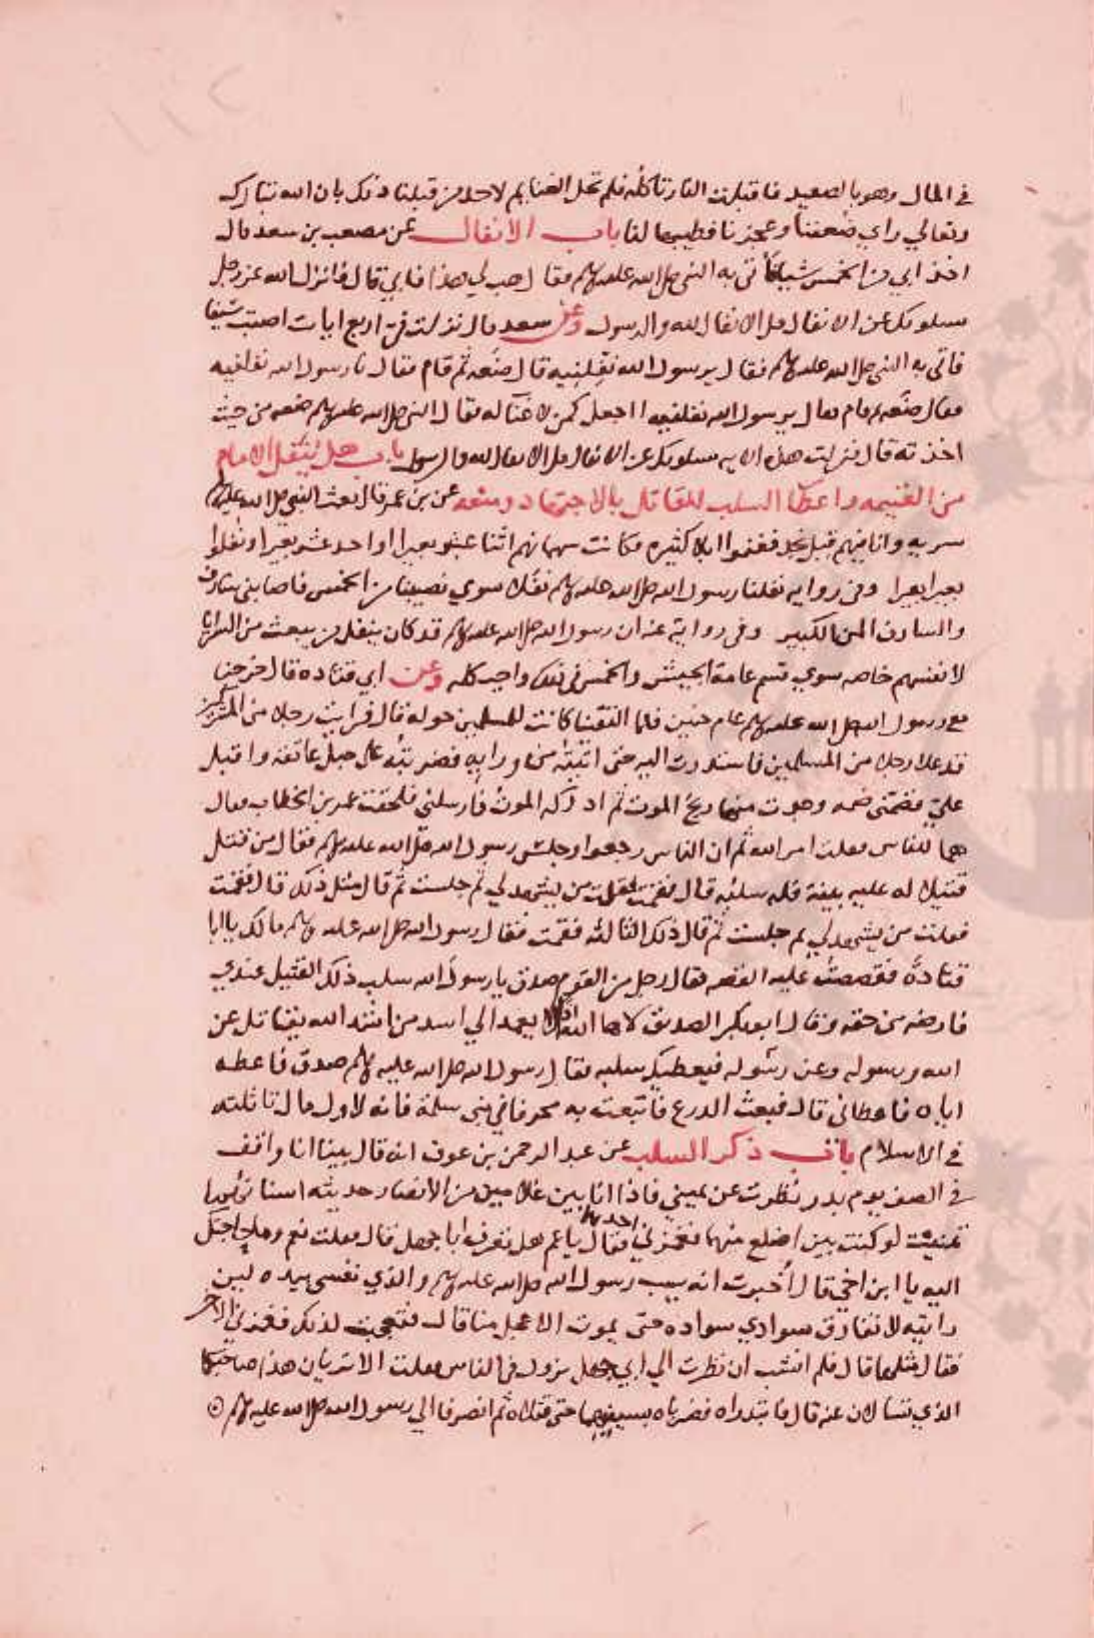 في المال وهو بالصعيد فاقبلت النار تاكله فلم تحل الغنايم لاحد من قبلنا ذلك بان الله تبارك
وتعالي راي ضعفنا وعجزنا فطيبها لنا باب الانفال عن مصعب بن سعد قال
اخذ ابي من الخمس شيئا فاتى به النبي صلى الله عليه وسلم فقال هب لي هذا فابي قال فانزل الله عز وجل
يسلونك عن الانفال قل الانفال لله والرسول وعن سعد قال نزلت في اربع ايات اصبت سيفا
فاتى به النبي صلى الله عليه وسلم فقال يرسول الله نفلنيه قال ضعه ثم قام فقال يا رسول الله نفلنيه
فقال ضعه ثم قام فقال يرسول الله نفلنيه ااجعل كمن لا غنا له فقال النبي صلى الله عليه وسلم ضعه من حيث
اخذته قال فنزلت هذه الايه يسلونك عن الانفال قل الانفال لله والرسول باب هل ينفل الامام
من الغنيمه واعطا السلب للقاتل بالاجتهاد ومنعه عن بن عمر قال بعث النبي صلى الله عليه وسلم
سريه وانا فيهم قبل نجد فغنموا ابلا كثيره فكانت سهمانهم اثنا عشر بعيرا او احد عشر بعيرا ونفلوا
بعيرا بعيرا وفي روايه نفلنا رسول الله صلى الله عليه وسلم نفلا سوي نصيبنا من الخمس فاصابني شارف
والشارف المسن الكبير وفي رواية عنه ان رسول الله صلى الله عليه وسلم قد كان ينفل من يبعث من السرايا
لانفسهم خاصه سوي قسم عامة الجيش والخمس في ذلك واجب كله وعن ابي قتاده قال خرجنا
مع رسول الله صلى الله عليه وسلم عام حنين فلما التقينا كانت للمسلمين جوله قال فرايت رجلا من المشركين
قد علا رجلا من المسلمين فاستدرت اليه حتى اتيته من ورايه فضربته على حبل عاتقه واقبل
علي فضمني ضمه وجدت منها ريح الموت ثم ادركه الموت فارسلني فلحقت عمر بن الخطاب فقال
ما للناس فقلت امر الله ثم ان الناس رجعوا وجلس رسول الله صلى الله عليه وسلم فقال من قتل
قتيلا له عليه بينة فله سلبه قال فقمت فقلت من يشهد لي ثم جلست ثم قال مثل ذلك قال فقمت
فقلت من يشهد لي ثم جلست ثم قال ذلك الثالثه فقمت فقال رسول الله صلى الله عليه وسلم ما لك يا ابا
قتادة فقصصت عليه القصه فقال رجل من القوم صدق يا رسول الله سلب ذلك القتيل عندي
فارضه من حقه وقال ابو بكر الصديق لاها الله اذا لا يعمد الي اسد من اسد الله يقاتل عن
الله ورسوله وعن رسوله فيعطيك سلبه فقال رسول الله صلى الله عليه وسلم صدق فاعطه
اياه فاعطاني قال فبعت الدرع فابتعت به مخرفا في بني سلمة فانه لاول مال تاثلته
في الاسلام باب ذكر السلب عن عبد الرحمن بن عوف انه قال بينا انا واقف
في الصف يوم بدر نظرت عن يميني فاذا انا بين غلامين من الانصار حديثه اسنانهما
تمنيت لو كنت بين اضلع منهما فغمزني احدهما فقال يا عم هل تعرف ابا جهل قال فقلت نعم وما حاجتك
اليه يا ابن اخي قال أخبرت انه يسب رسول الله صلى الله عليه وسلم والذي نفسي بيده لين
رايته لا تفارق سوادي سواده حتى يموت الاعجل منا قال فتعجبت لذلك فغمزني الاخر
فقال مثلها قال فلم انشب ان نظرت الي ابي جهل يزول في الناس فقلت الا تريان هذا صاحبكما
الذي تسالان عنه قال فابتدراه فضرباه بسيفيهما حتى قتلاه ثم انصرفا الي رسول الله صلى الله عليه وسلم